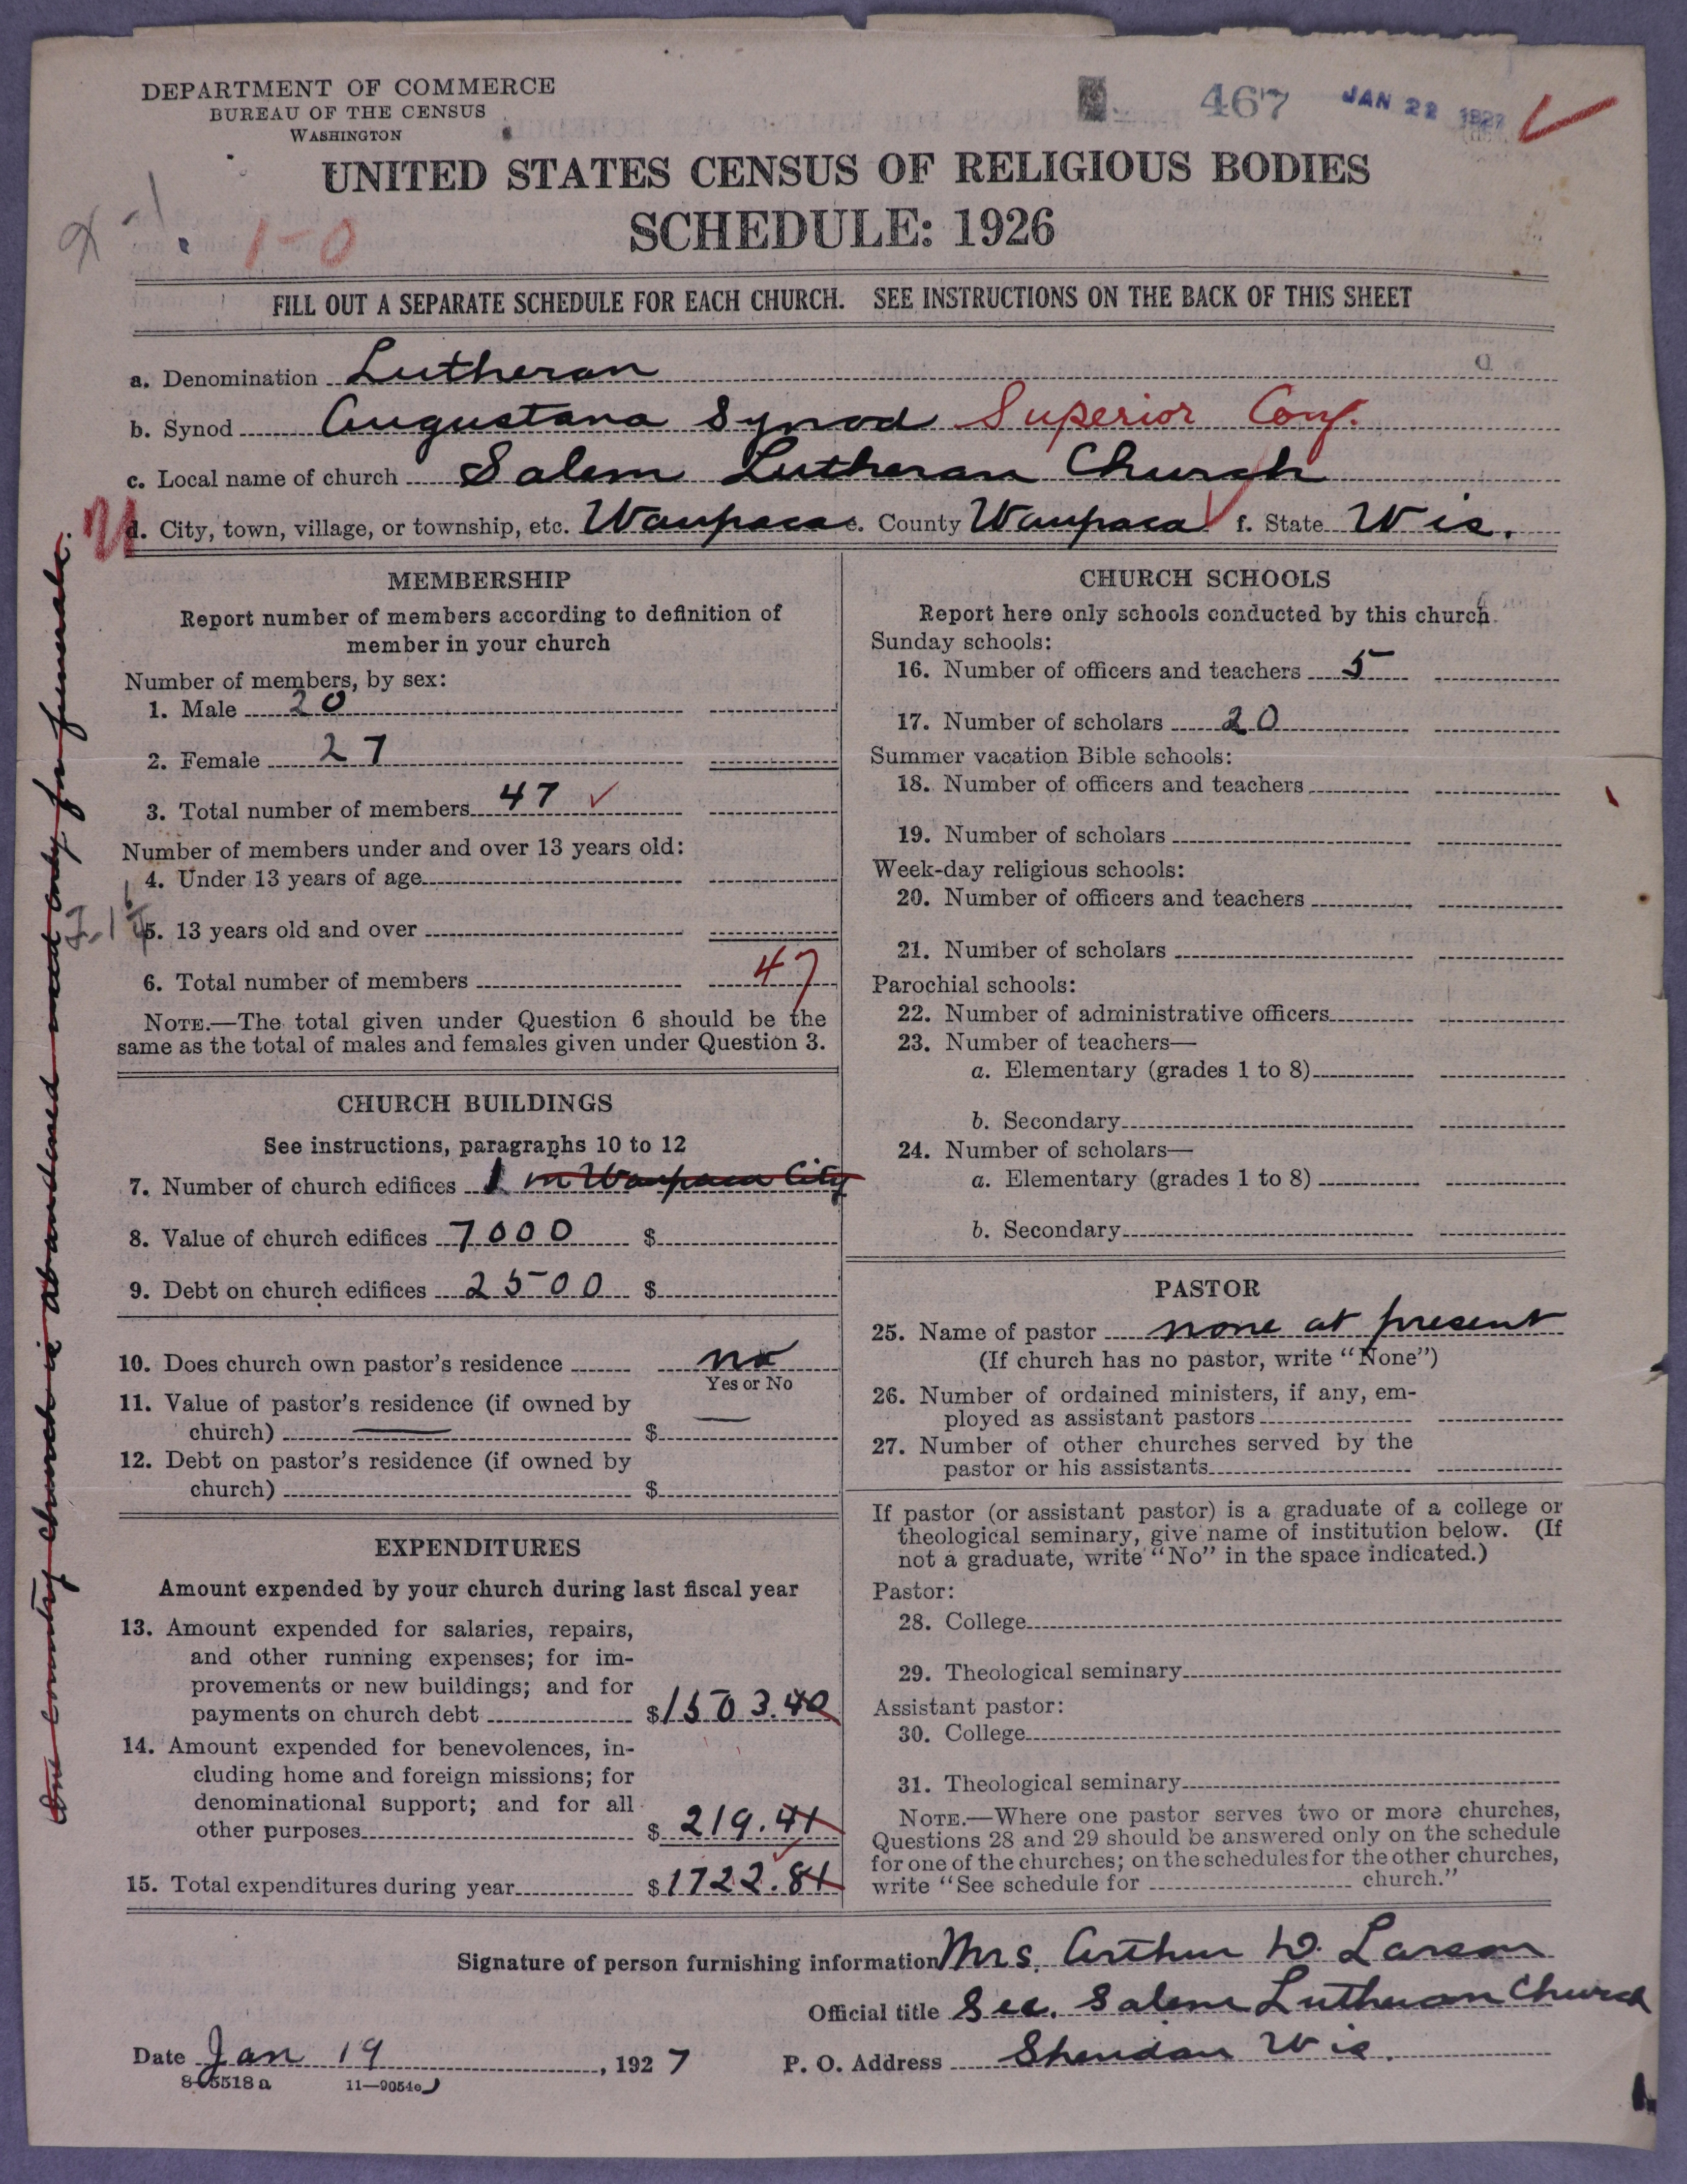 DEPARTMENT OF COMMERCE
BUREAU OF THE CENSUS
WASHINGTON
467
JAN 22 1927
UNITED STATES CENSUS OF RELIGIOUS BODIES
SCHEDULE: 1926
1-0
FILL OUT A SEPARATE SCHEDULE FOR EACH CHURCH. SEE INSTRUCTIONS ON THE BACK OF THIS SHEET
a. Denomination Lutheran
b. Synod Augustana Synod Superior Conf.
c. Local name of church Salem Lutheran Church
d. City, town, village, or township, etc. Waupaca e. County Waupaca f. State Wis.
One country church is abandoned used only for funerals.
MEMBERSHIP
Report number of members according to definition of
member in your church
Number of members, by sex:
1. Male 20
2. Female 27
3. Total number of members 47
Number of members under and over 13 years old:
4. Under 13 years of age
5. 13 years old and over
6. Total number of members 47
NOTE.—The total given under Question 6 should be the
same as the total of males and females given under Question 3.
CHURCH BUILDINGS
See instructions, paragraphs 10 to 12
7. Number of church edifices 1 in Waupaca City
8. Value of church edifices 7000 $
9. Debt on church edifices 2500 $
10. Does church own pastor's residence no
Yes or No
11. Value of pastor's residence (if owned by
church) — $ —
12. Debt on pastor's residence (if owned by
church) $
EXPENDITURES
Amount expended by your church during last fiscal year
13. Amount expended for salaries, repairs,
and other running expenses; for im-
provements or new buildings; and for
payments on church debt $1503.40
14. Amount expended for benevolences, in-
cluding home and foreign missions; for
denominational support; and for all
other purposes $219.41
15. Total expenditures during year $1722.81
CHURCH SCHOOLS
Report here only schools conducted by this church.
Sunday schools:
16. Number of officers and teachers 5
17. Number of scholars 20
Summer vacation Bible schools:
18. Number of officers and teachers
19. Number of scholars
Week-day religious schools:
20. Number of officers and teachers
21. Number of scholars
Parochial schools:
22. Number of administrative officers
23. Number of teachers—
a. Elementary (grades 1 to 8)
b. Secondary
24. Number of scholars—
a. Elementary (grades 1 to 8)
b. Secondary
PASTOR
25. Name of pastor none at present
(If church has no pastor, write "None")
26. Number of ordained ministers, if any, em-
ployed as assistant pastors
27. Number of other churches served by the
pastor or his assistants
If pastor (or assistant pastor) is a graduate of a college or
theological seminary, give name of institution below. (If
not a graduate, write "No" in the space indicated.)
Pastor:
28. College
29. Theological seminary
Assistant pastor:
30. College
31. Theological seminary
NOTE.—Where one pastor serves two or more churches,
Questions 28 and 29 should be answered only on the schedule
for one of the churches; on the schedules for the other churches,
write "See schedule for church."
Signature of person furnishing information Mrs. Arthur W. Larson
Official title Sec. Salem Lutheran Church
Date Jan 19, 1927 P. O. Address Sheridan Wis.
8-5518a 11-9054